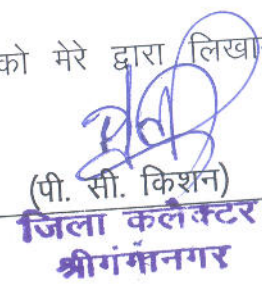 को मेरे द्वारा लिखा
(पी. सी. किशन)
जिला कलेक्टर
श्रीगंगानगर